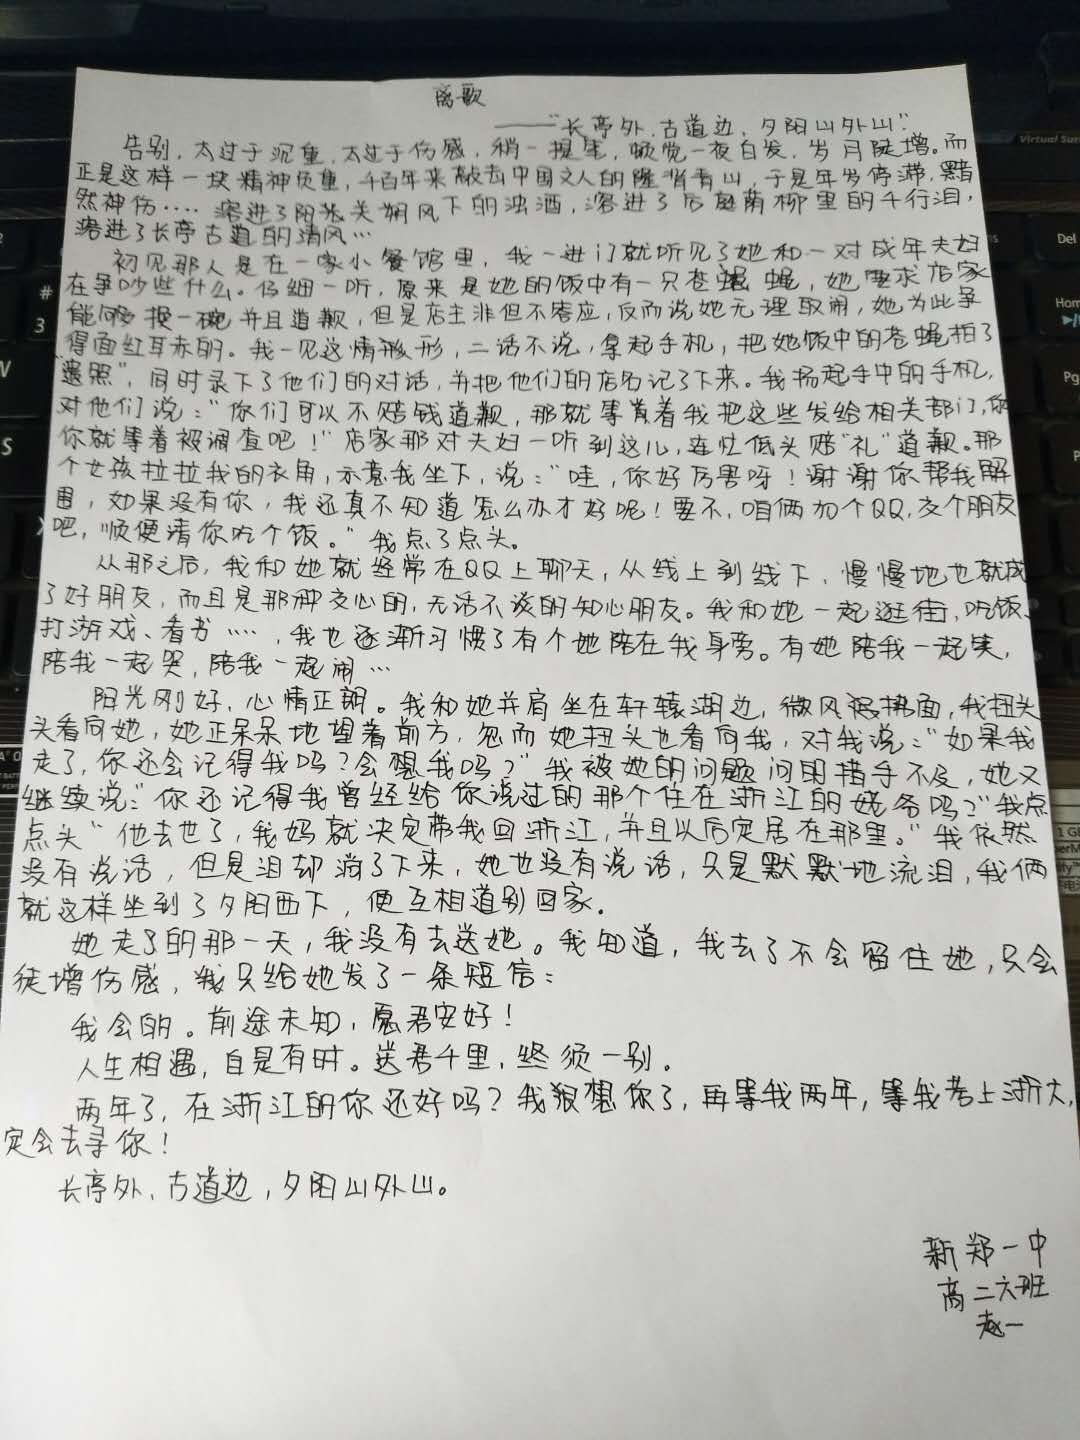 离歌
——"长亭外,古道边,夕阳山外山".
告别,太过于沉重,太过于伤感,稍一提笔,顿觉一夜白发,岁月陡增。而
正是这样一块精神负重,千百年来敲击中国文人的隆脊青山,于是年岁停滞,黯
然神伤……溶进了阳关朔风下的浊酒,溶进了后庭南柳里的千行泪,
溶进了长亭古道的清风…
初见那人是在一家小餐馆里,我一进门就听见了她和一对成年夫妇
在争吵些什么。仔细一听,原来是她的饭中有一只苍蝇,她要求店家
能够换一碗并且道歉,但是店主非但不答应,反而说她无理取闹,她为此争
得面红耳赤的。我一见这情形,二话不说,拿起手机,把她饭中的苍蝇拍了
"遗照",同时录下了他们的对话,并把他们的店名记了下来。我扬起手中的手机,
对他们说:"你们可以不赔钱道歉,那就等着我把这些发给相关部门,
你就等着被调查吧!"店家那对夫妇一听到这儿,连忙低头赔"礼"道歉。那
个女孩拉拉我的衣角,示意我坐下,说:"哇,你好厉害呀!谢谢你帮我解
围,如果没有你,我还真不知道怎么办才好呢!要不,咱俩加个QQ,交个朋友
吧,顺便请你吃个饭。"我点了点头。
从那之后,我和她就经常在QQ上聊天,从线上到线下,慢慢地也就成
了好朋友,而且是那种交心的,无话不谈的知心朋友。我和她一起逛街,吃饭、
打游戏、看书……,我也逐渐习惯了有个她陪在我身旁。有她陪我一起笑,
陪我一起哭,陪我一起闹…
阳光刚好,心情正调。我和她并肩坐在轩辕湖边,微风拂面,我扭头
头看向她,她正呆呆地望着前方,忽而她扭头也看向我,对我说:"如果我
走了,你还会记得我吗?会想我吗?"我被她的问题问的措手不及,她又
继续说:"你还记得我曾经给你说过的那个住在浙江的姥爷吗?"我点
点头"他去世了,我妈就决定带我回浙江,并且以后定居在那里。"我依然
没有说话,但是泪却淌了下来,她也没有说话,只是默默地流泪,我俩
就这样坐到了夕阳西下,便互相道别回家.
她走了的那一天,我没有去送她。我知道,我去了不会留住她,只会
徒增伤感,我只给她发了一条短信:
我会的。前途未知,愿君安好!
人生相遇,自是有时。送君千里,终须一别。
两年了,在浙江的你还好吗?我狠想你了,再等我两年,等我考上浙大,
定会去寻你!
长亭外,古道边,夕阳山外山。
新郑一中
高二六班
赵一
# 3
Virtual Sur
Del
Home
Pg